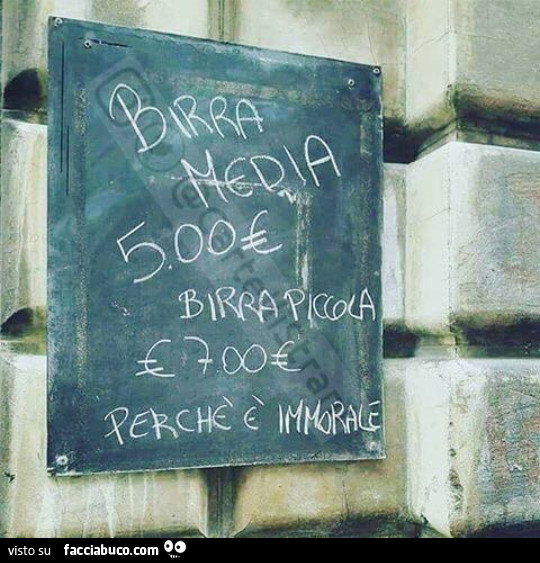 BIRRA
MEDIA
5.00€
BIRRA PICCOLA
€ 7.00€
PERCHÈ È IMMORALE
visto su facciabuco.com